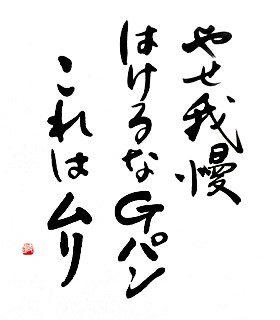 やせ我慢
はけるなGパン
これはムリ